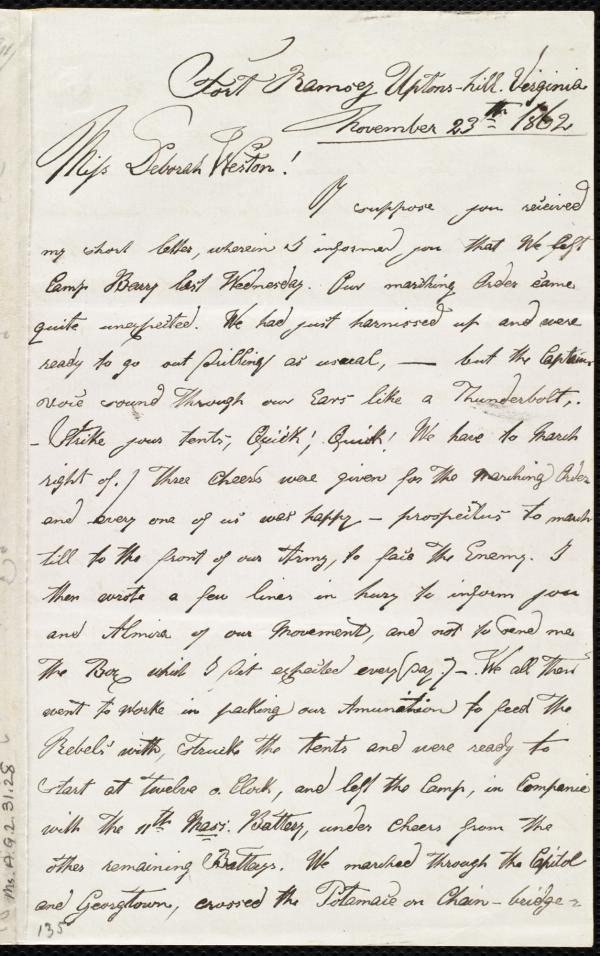 Fort Ramsey Uptons-hill. Virginia
November 23th 1862
Miss Deborah Weston!
I suppose you received
my short letter, wherein I informed you that We left
Camp Barry last Wednesday. Our marching Order came
quite unexpected. We had just harnissed up and were
ready to go out Drilling as usual, — but the Captains
voice sound through our Ears like a Thunderbolt,.
- Strike your tents, Quick!, Quick! We have to march
right of.) Three Cheers were given for the marching Order
and every one of us was happy - prospectus to march
till to the front of our Army, to face the Enemy. I
then wrote a few lines in hury to inform you
and Almira of our Movement, and not to send me
the Box which I dit expected every (day.) - We all then
went to worke in packing our Amunition to feed the
Rebels with, Struck the tents and were ready to
start at twelve o. Clock, and left the Camp, in Companie
with the 11th Mass. Battery, under cheers from the
other remaining Batterys. We marched through the Capitol
and Georgtown, crossed the Potamac on Chain-bridge-
135
Ms. A.9.2.31.28